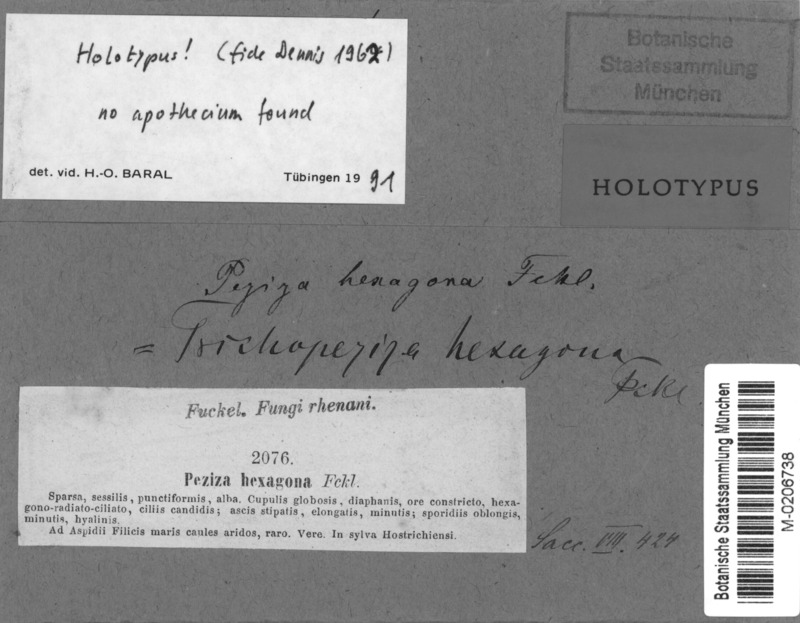 Holotypus! (fide Dennis 1962)
no apothecium found
det. vid. H.-O. BARAL Tübingen 19 91
Botanische
Staatssammlung
München
HOLOTYPUS
Peziza hexagona Fckl.
= Trichopeziza hexagona
Fckl.
Fuckel. Fungi rhenani.
2076.
Peziza hexagona Fckl.
Sparsa, sessilis, punctiformis, alba. Cupulis globosis, diaphanis, ore constricto, hexa-
gono-radiato-ciliato, ciliis candidis; ascis stipatis, elongatis, minutis; sporidiis oblongis,
minutis, hyalinis.
Ad Aspidii Filicis maris caules aridos, raro. Vere. In sylva Hostrichiensi.
Sacc. VIII. 424
Botanische Staatssammlung München
M-0206738